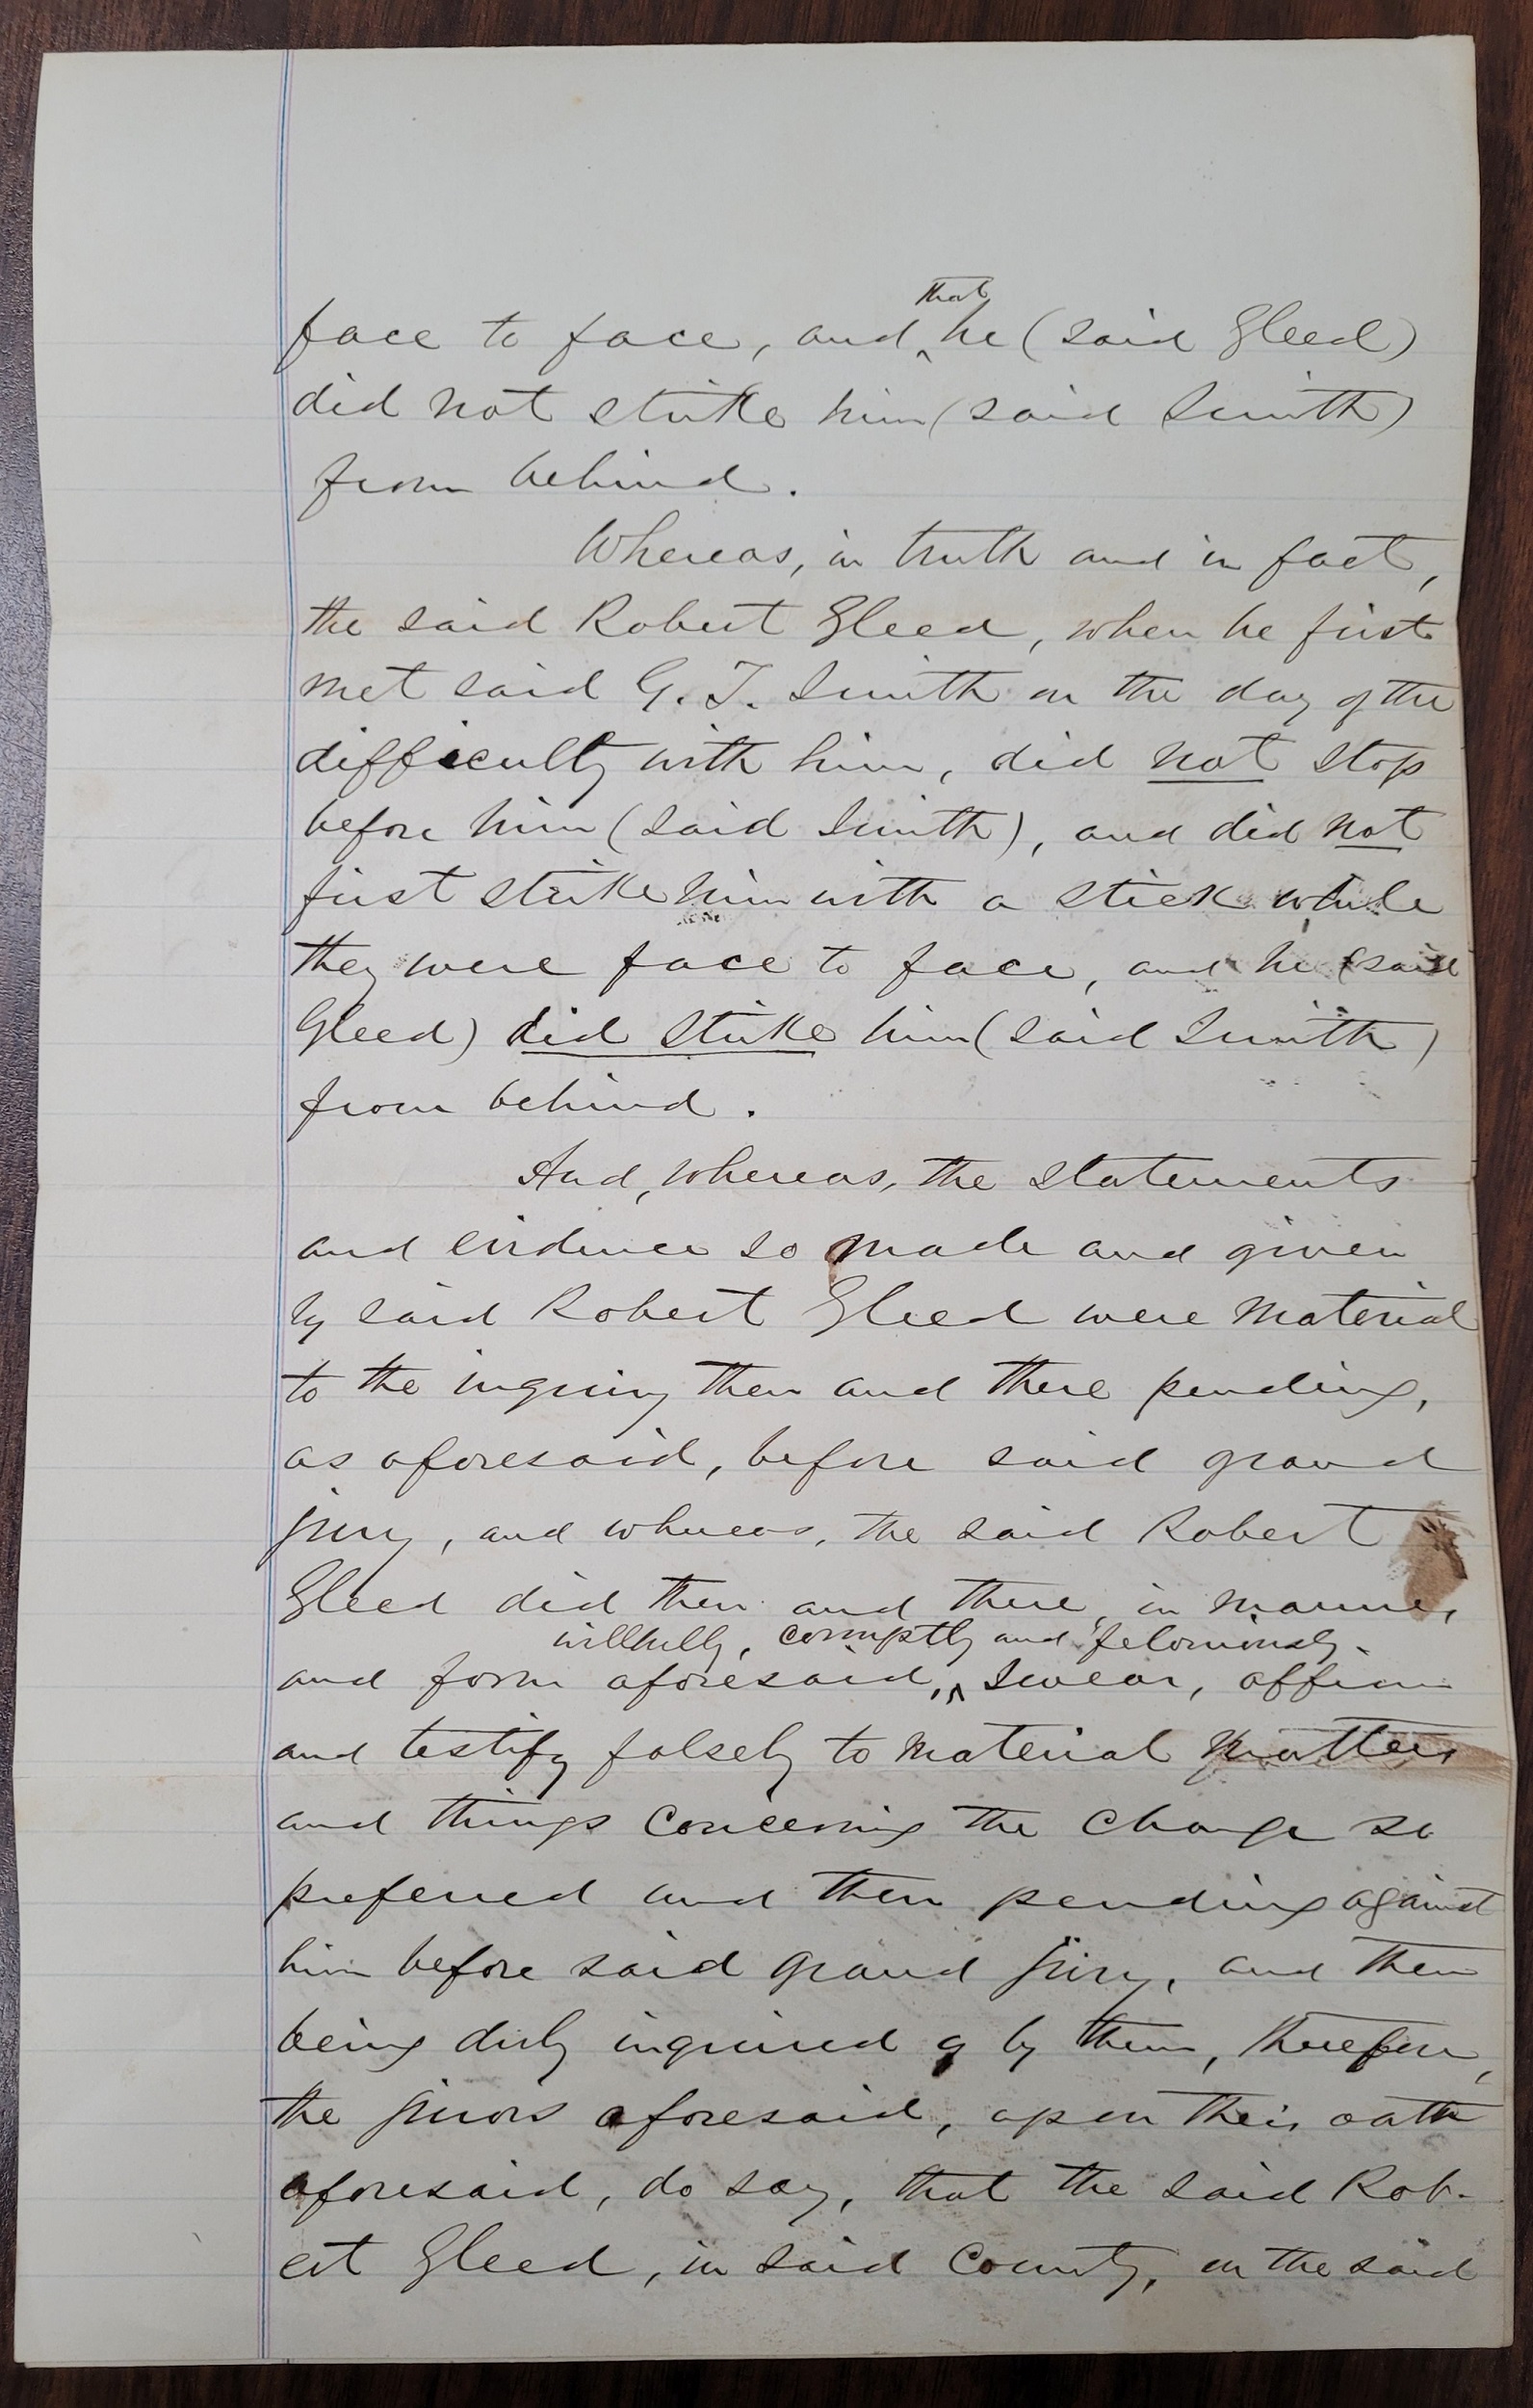 face to face, and that he (said Gleed)
did not strike him (said Smith)
from behind.
Whereas, in truth and in fact,
the said Robert Gleed, when he first
met said G. T. Smith on the day of the
difficulty with him, did not stop
before him (said Smith), and did not
first strike him with a stick while
they were face to face, and he (said
Gleed) did strike him (said Smith)
from behind.
And, whereas, the statements
and evidence so made and given
by said Robert Gleed were material
to the inquiry then and there pending,
as aforesaid, before said grand
jury, and whereas, the said Robert
Gleed did then and there, in manner
willfully, corruptly and feloniously
and form aforesaid, swear, affirm
and testify falsely to material matters
and things concerning the charge so
preferred and then pending against
him before said grand jury, and then
being duly inquired of by them, therefore,
the jurors aforesaid, upon their oath
aforesaid, do say, that the said Rob-
ert Gleed, in said County, on the said